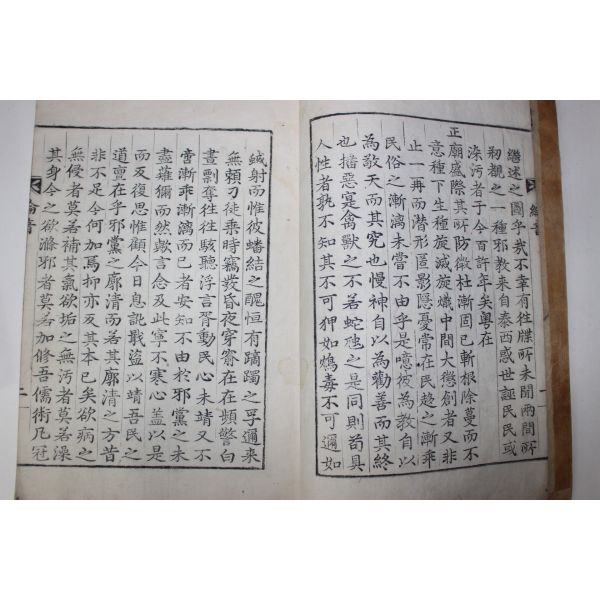 繼述之圖乎哉不幸有往牒所未聞兩間所
刱覩之一種邪敎来自泰西惑世誣民民或
染汚者于今百許年矣粤在
正廟盛際其所防微杜漸固已斬根除蔓而不
意種下生種旋滅旋熾中間大懲創者又非
止一再而潜形匿影隱憂常在民趍之漸乖
民俗之漸漓未嘗不由乎是噫彼為敎自以
為敬天而其究也慢神自以為勸善而其終
也播惡寔禽獸之不若蛇虺之是同則苟具
人性者孰不知其不可狎如鴆毒不可邇如
蜮射而惟彼蟠結之醜恒有蹢躅之孚邇来
無頼刁徒乗時竊發昏夜穿窬在在頻警白
晝剽奪往往駭聽浮言胥動民心未靖又不
啻漸乖漸漓而已者安知不由於邪黨之未
盡薙獮而然歟言念及此寧不寒心盖以是
而反復思惟顧今日息訛戢盗以靖吾民之
道亶在乎邪黨之廓清而若其廓清之方昔
非不足今何加焉抑亦反其本已矣欲病之
無侵者莫若補其氣欲垢之無汚者莫若澡
其身今之欲滌邪者莫若加修吾儒術凡冠
綸音
一
綸音
二